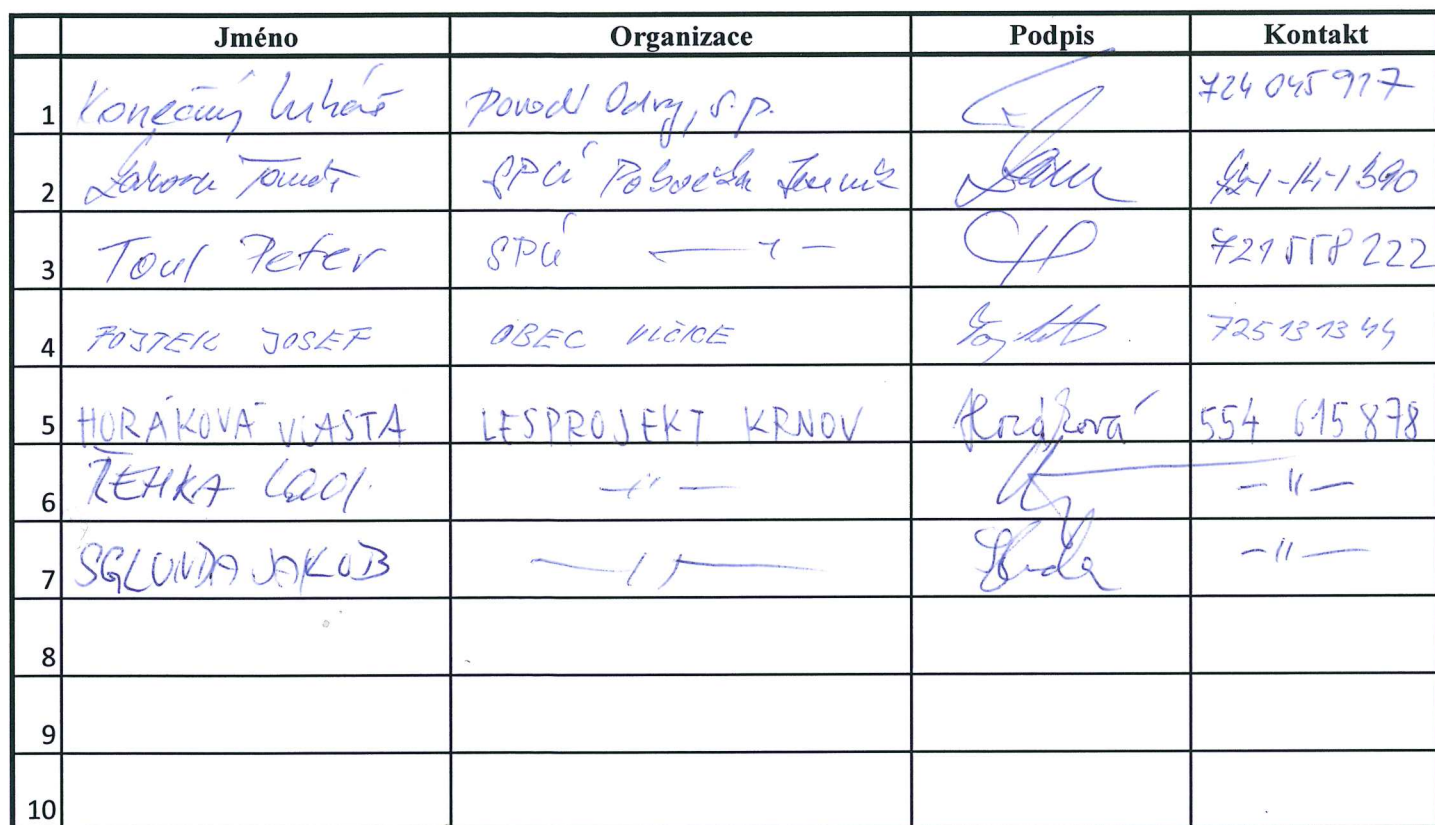 Jméno Organizace Podpis Kontakt
1 Konečný Lukáš Povodí Odry, s.p. 724 045 917
2 Tomáš SPÚ Pobočka Jeseník
3 Toul Peter SPÚ — " — 721 558 222
4 FOJTEK JOSEF OBEC VLČICE 725 13 13 44
5 HORÁKOVÁ VLASTA LESPROJEKT KRNOV Horáková 554 615 878
6 ŘEHKA Lad. — " — — " —
7 SGLUNDA JAKUB — " — — " —
8
9
10